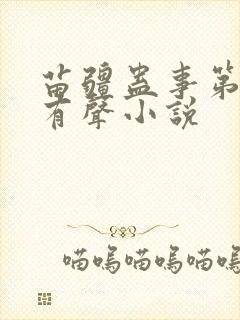 苗疆蠱事第
有聲小說
喵嗚喵嗚喵嗚